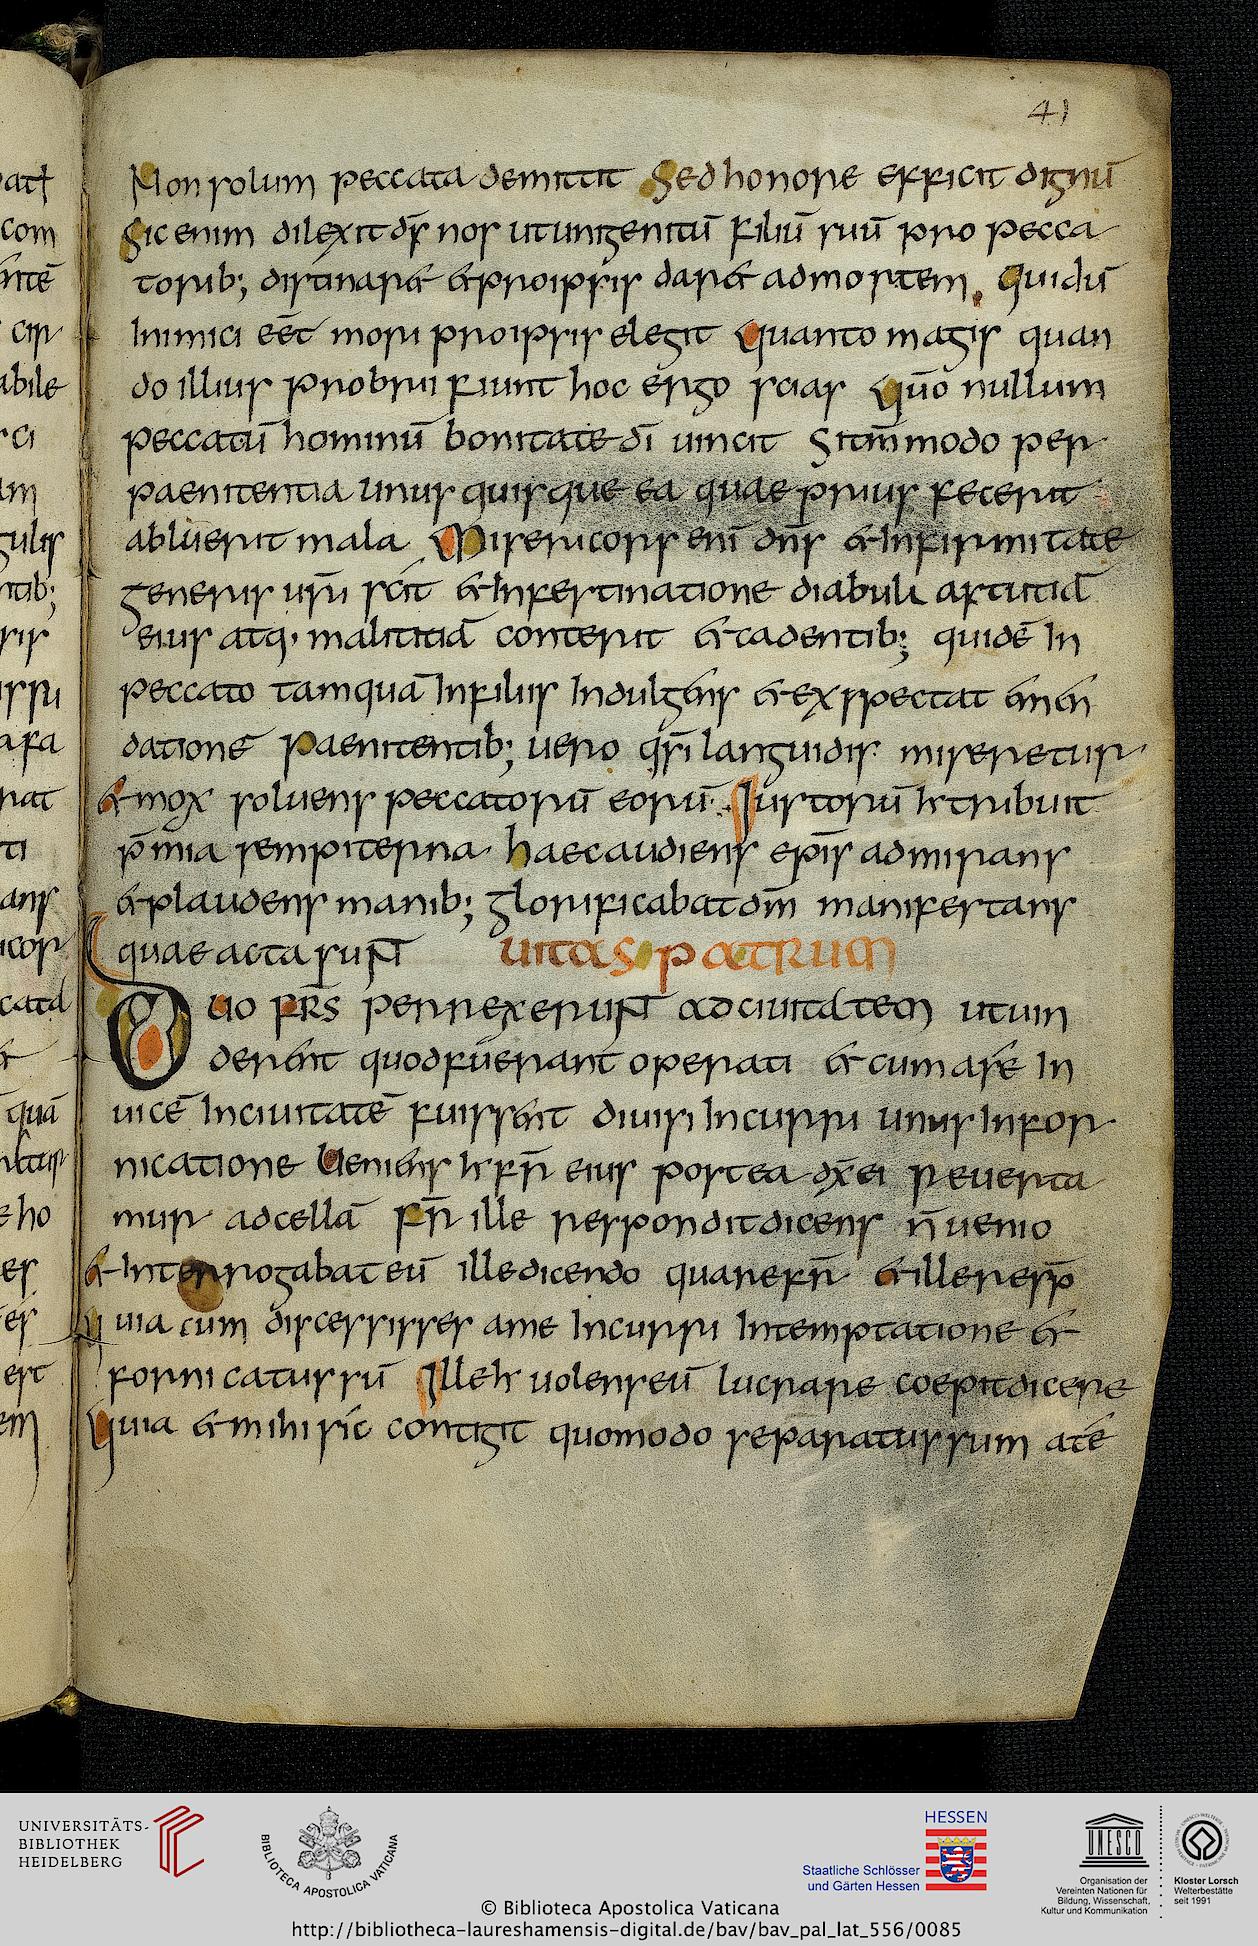 41
Non solum peccata demittit Sed honore efficit dignū
Sic enim dilexit d̄s nos ut unigenitū filiū suū pro pecca
torib; distinaret et pro ipsis daret ad mortem. Qui dū
Inimici eēt mori pro ipsis elegit Quanto magis quan
do illius probrii fiunt hoc ergo scias Qūo nullum
peccatū hominū bonitate dī uincit Si tm̄modo per
paenitentia unus quisque ea quae prius fecerit
abluerit mala Misericors enī dn̄s et Infirmitate
generis ur̄i scīt et Infestinatione diabuli astutiā
eius atq· malititiā conterit et cadentib; quidē In
peccato tamquā Infiliis Indulgens et exspectat emen
datione paenitentib; uero qr̄i languidis miseretur
et mox soluens peccatorū eorū. Iustorū hr tribuit
p̄mia sempiterna haec audiens ep̄is admirans
et plaudens manib; glorificabat dm̄ manifestans
quae acta sunt uitas patrum
Duo fr̄s perrexerunt ad ciuitatem ut uin
derent quod fuerant operati et cum a se In
uicē In ciuitatē fuissent diuisi Incurri unus In for
nicatione Ueniens hr fr̄ eius postea dx̄ ei reuerta
mur ad cellā fr̄ ille respondit dicens n̄ uenio
et Interrogabat eū ille dicendo quare fr̄ et ille resp̄
Quia cum discessisses a me Incurri In temptatione et
fornicatus sū Ille hr uolens eū lucrare coepit dicere
Quia et mihi sic contigit quomodo separatus sum a te
UNIVERSITÄTS-
BIBLIOTHEK
HEIDELBERG
BIBLIOTECA APOSTOLICA VATICANA
HESSEN
Staatliche Schlösser
und Gärten Hessen
UNESCO
Organisation der
Vereinten Nationen für
Bildung, Wissenschaft,
Kultur und Kommunikation
Kloster Lorsch
Welterbestätte
seit 1991
© Biblioteca Apostolica Vaticana
http://bibliotheca-laureshamensis-digital.de/bav/bav_pal_lat_556/0085